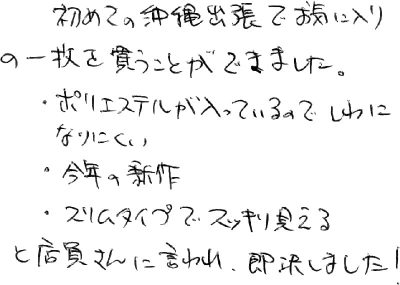 初めての沖縄出張でお気に入り
の一枚を買うことができました。
・ポリエステルが入っているのでしわに
なりにくい
・今年の新作
・スリムタイプでスッキリ見える
と店員さんに言われ、即決しました!